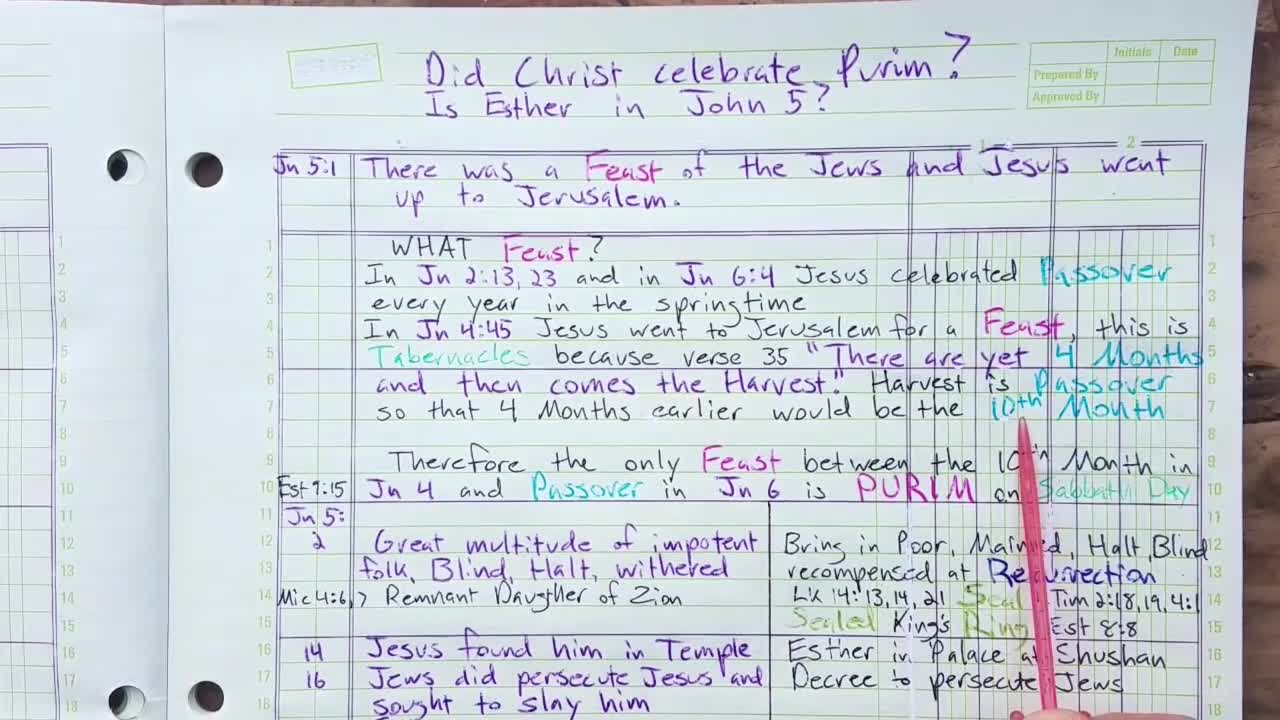 Did Christ celebrate Purim?
Is Esther in John 5?
Initials Date
Prepared By
Approved By
1 2
Jn 5:1 There was a Feast of the Jews and Jesus went
up to Jerusalem.
1 WHAT Feast? 1
2 In Jn 2:13, 23 and in Jn 6:4 Jesus celebrated Passover 2
3 every year in the springtime 3
4 In Jn 4:45 Jesus went to Jerusalem for a Feast, this is 4
5 Tabernacles because verse 35 "There are yet 4 Months 5
6 and then comes the Harvest." Harvest is Passover 6
7 so that 4 Months earlier would be the 10th Month 7
8 8
9 Therefore the only Feast between the 10th Month in 9
Est 9:15 10 Jn 4 and Passover in Jn 6 is PURIM on Sabbath Day 10
Jn 5: 11
2 12 Great multitude of impotent Bring in Poor, Maimed, Halt, Blind 12
13 folk, Blind, Halt, withered recompensed at Resurrection 13
Mic 4:6,7 Remnant Daugther of Zion Lk 14:13,14,21 Seal Tim 2:18,19, 4:1 14
15 Sealed King's Ring Est 8:8 15
14 Jesus found him in Temple Esther in Palace at Shushan 16
16 Jews did persecute Jesus and Decree to persecute Jews 17
sought to slay him 18